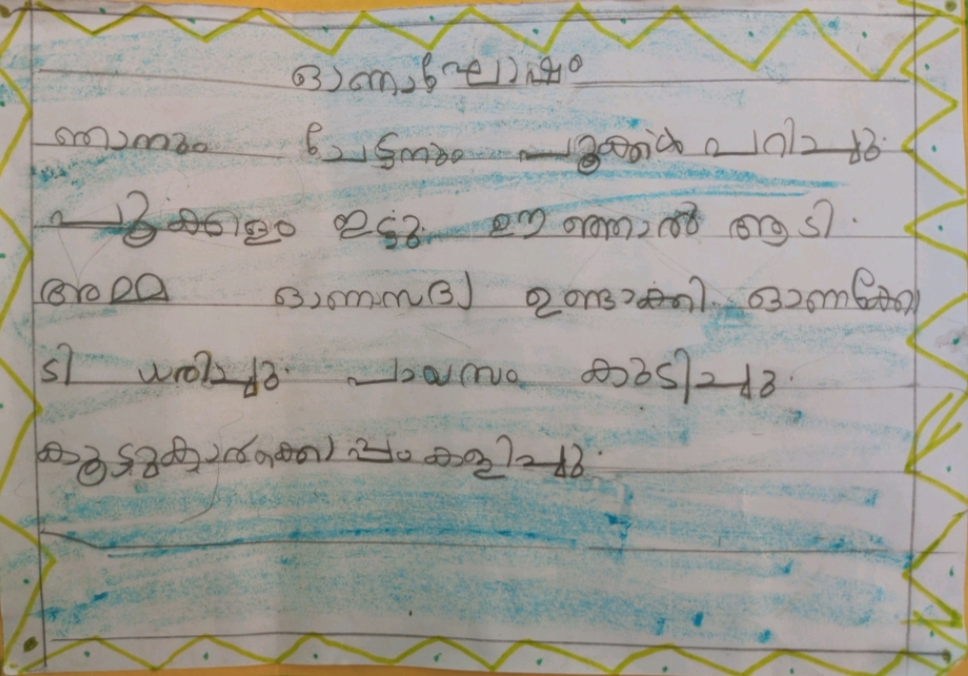 ഓണാഘോഷം
ഞാനും ചേട്ടനും പൂക്കൾ പറിച്ചു.
പൂക്കളം ഇട്ടു. ഊഞ്ഞാൽ ആടി.
അമ്മ ഓണസദ്യ ഉണ്ടാക്കി. ഓണക്കോ
ടി ധരിച്ചു. പായസം കുടിച്ചു.
കൂട്ടുകാർക്കൊപ്പം കളിച്ചു.